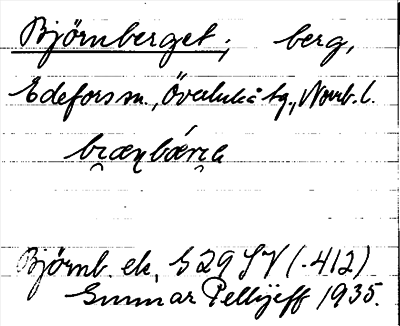 Björnberget, berg,
Edefors sn., Överluleå tg., Norrb. l.
Björnb. ek. G 29 SV (-412)
Gunnar Pellijeff 1935.